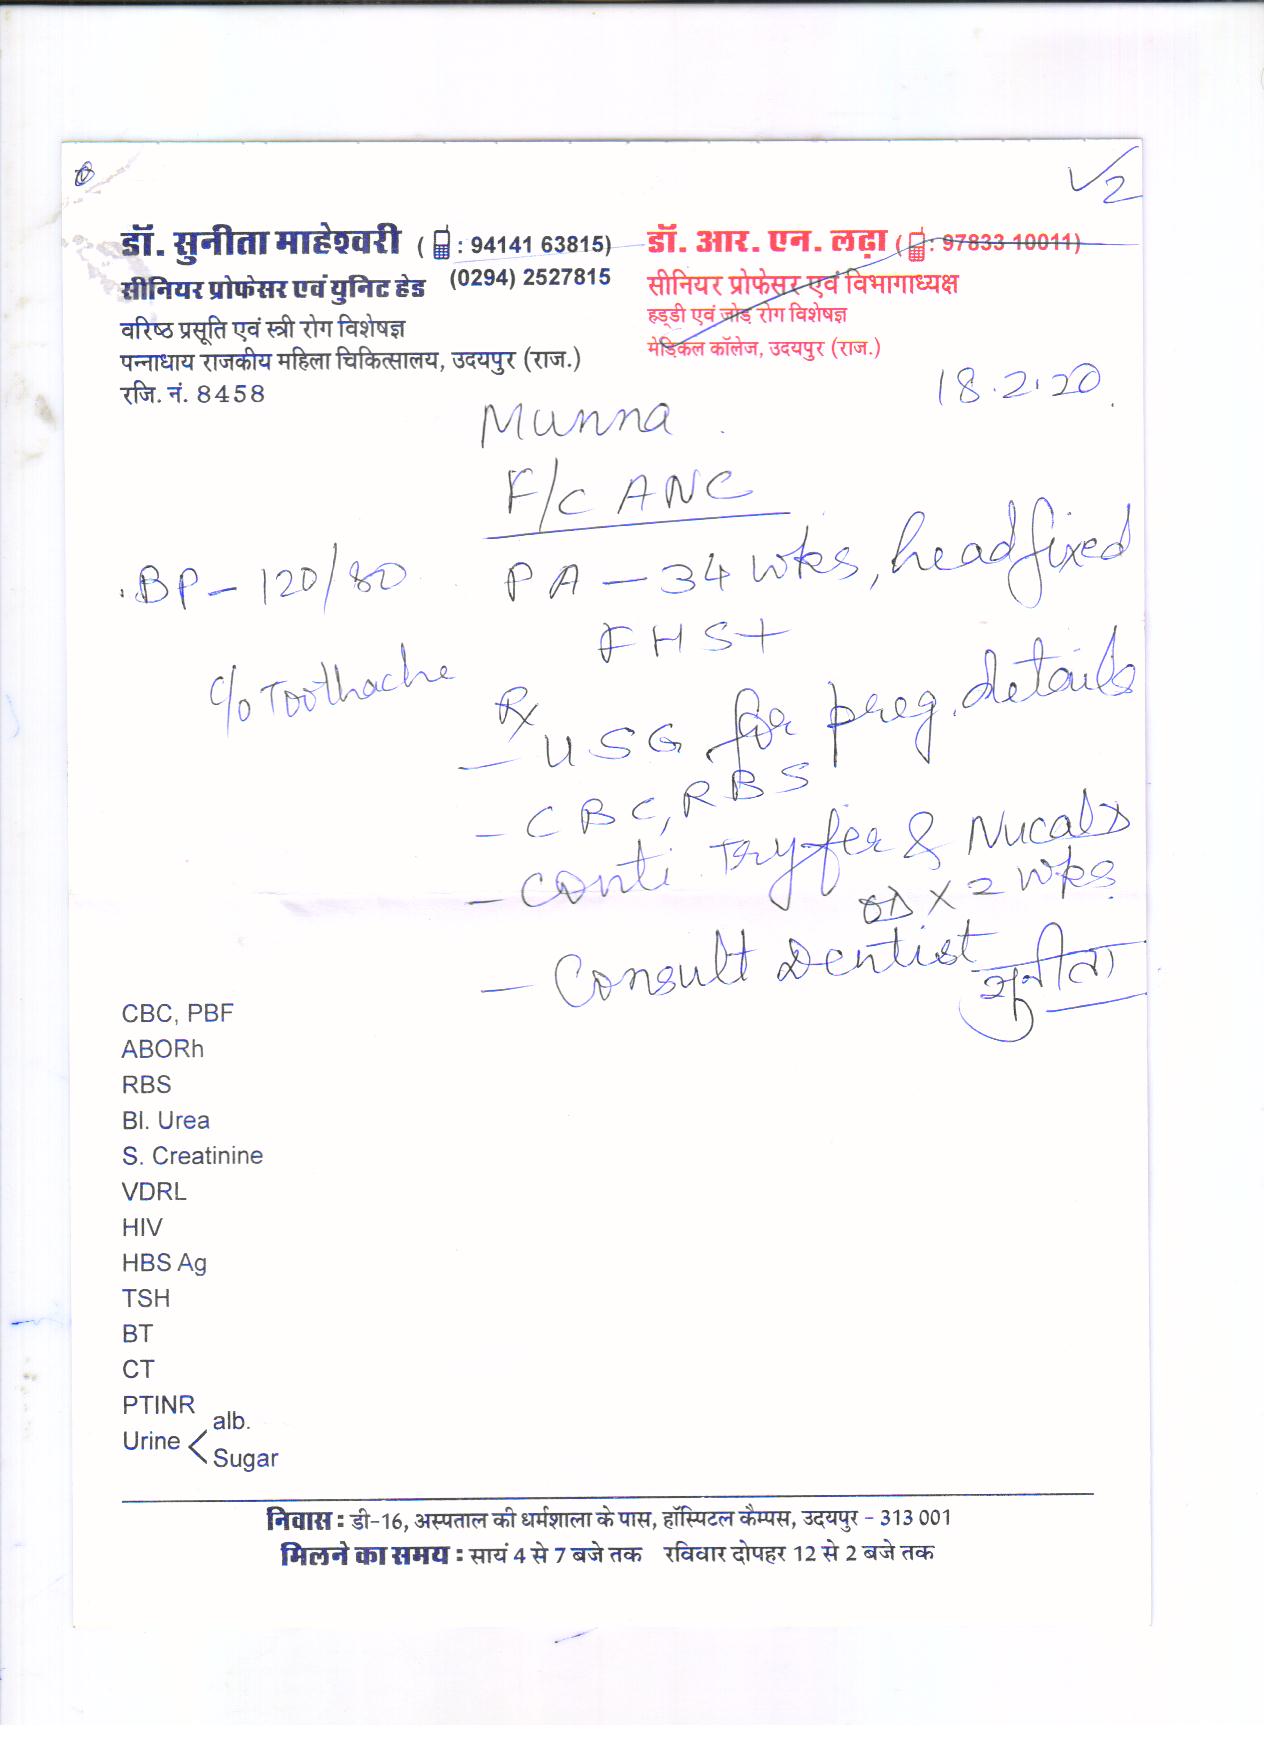 √2
डॉ. सुनीता माहेश्वरी ( : 94141 63815)
(0294) 2527815
सीनियर प्रोफेसर एवं युनिट हेड
वरिष्ठ प्रसूति एवं स्त्री रोग विशेषज्ञ
पन्नाधाय राजकीय महिला चिकित्सालय, उदयपुर (राज.)
रजि. नं. 8458
डॉ. आर. एन. लढ़ा ( : 97833 10011)
सीनियर प्रोफेसर एवं विभागाध्यक्ष
हड्डी एवं जोड़ रोग विशेषज्ञ
मेडिकल कॉलेज, उदयपुर (राज.)
18.2.20
Munna
F/C ANC
BP - 120/80
PA - 34 wks, head fixed
FHS+
C/o Toothache
Rx
- USG for preg. details
- CBC, RBS
- Conti Tryfer &
OD x 2 wks
- Consult Dentist
सुनीता
CBC, PBF
ABORh
RBS
Bl. Urea
S. Creatinine
VDRL
HIV
HBS Ag
TSH
BT
CT
PTINR
Urine < alb.
Sugar
निवास : डी-16, अस्पताल की धर्मशाला के पास, हॉस्पिटल कैम्पस, उदयपुर - 313 001
मिलने का समय : सायं 4 से 7 बजे तक रविवार दोपहर 12 से 2 बजे तक